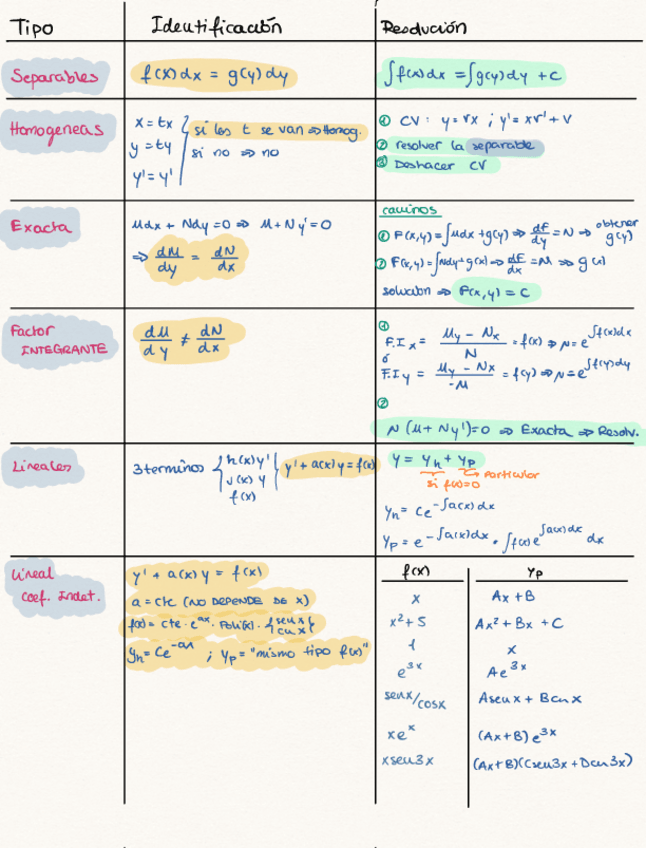 Tipo Identificación Resolución
Separables f(x) dx = g(y) dy ∫f(x)dx = ∫g(y)dy + C
Homogeneas
x = tx
y = ty
y' = y'
si las t se van ⇒ Homog.
si no ⇒ no
① CV: y = vx ; y' = xv' + v
② resolver la separable
③ Deshacer CV
Exacta
Mdx + Ndy = 0 ⇒ M + Ny' = 0
⇒ dM/dy = dN/dx
caminos
① F(x,y) = ∫Mdx + g(y) ⇒ dF/dy = N ⇒ obtener g(y)
② F(x,y) = ∫Ndy + g(x) ⇒ dF/dx = M ⇒ g(x)
solución ⇒ F(x,y) = C
Factor
INTEGRANTE
dM/dy ≠ dN/dx
①
F.I x = My - Nx / N = f(x) ⇒ μ = e^∫f(x)dx
ó
F.I y = My - Nx / -M = f(y) ⇒ μ = e^∫f(y)dy
②
μ (M + Ny') = 0 ⇒ Exacta ⇒ Resolv.
Lineales
3 terminos
h(x) y'
j(x) y
f(x)
y' + a(x) y = f(x)
y = yh + yp → particular
si f(x)=0
yh = Ce^-∫a(x)dx
yp = e^-∫a(x)dx · ∫f(x) e^∫a(x)dx dx
Lineal
coef. Indet.
y' + a(x) y = f(x)
a = cte (NO DEPENDE DE X)
f(x) = cte · e^ax · Poli(x) · {senx cosx}
yh = Ce^-ax ; yp = "mismo tipo f(x)"
f(x) yp
x Ax + B
x² + 5 Ax² + Bx + C
1 x
e^3x Ae^3x
senx/cosx Asenx + Bcosx
xe^x (Ax + B) e^3x
xsen3x (Ax+B)(Csen3x + Dcos3x)